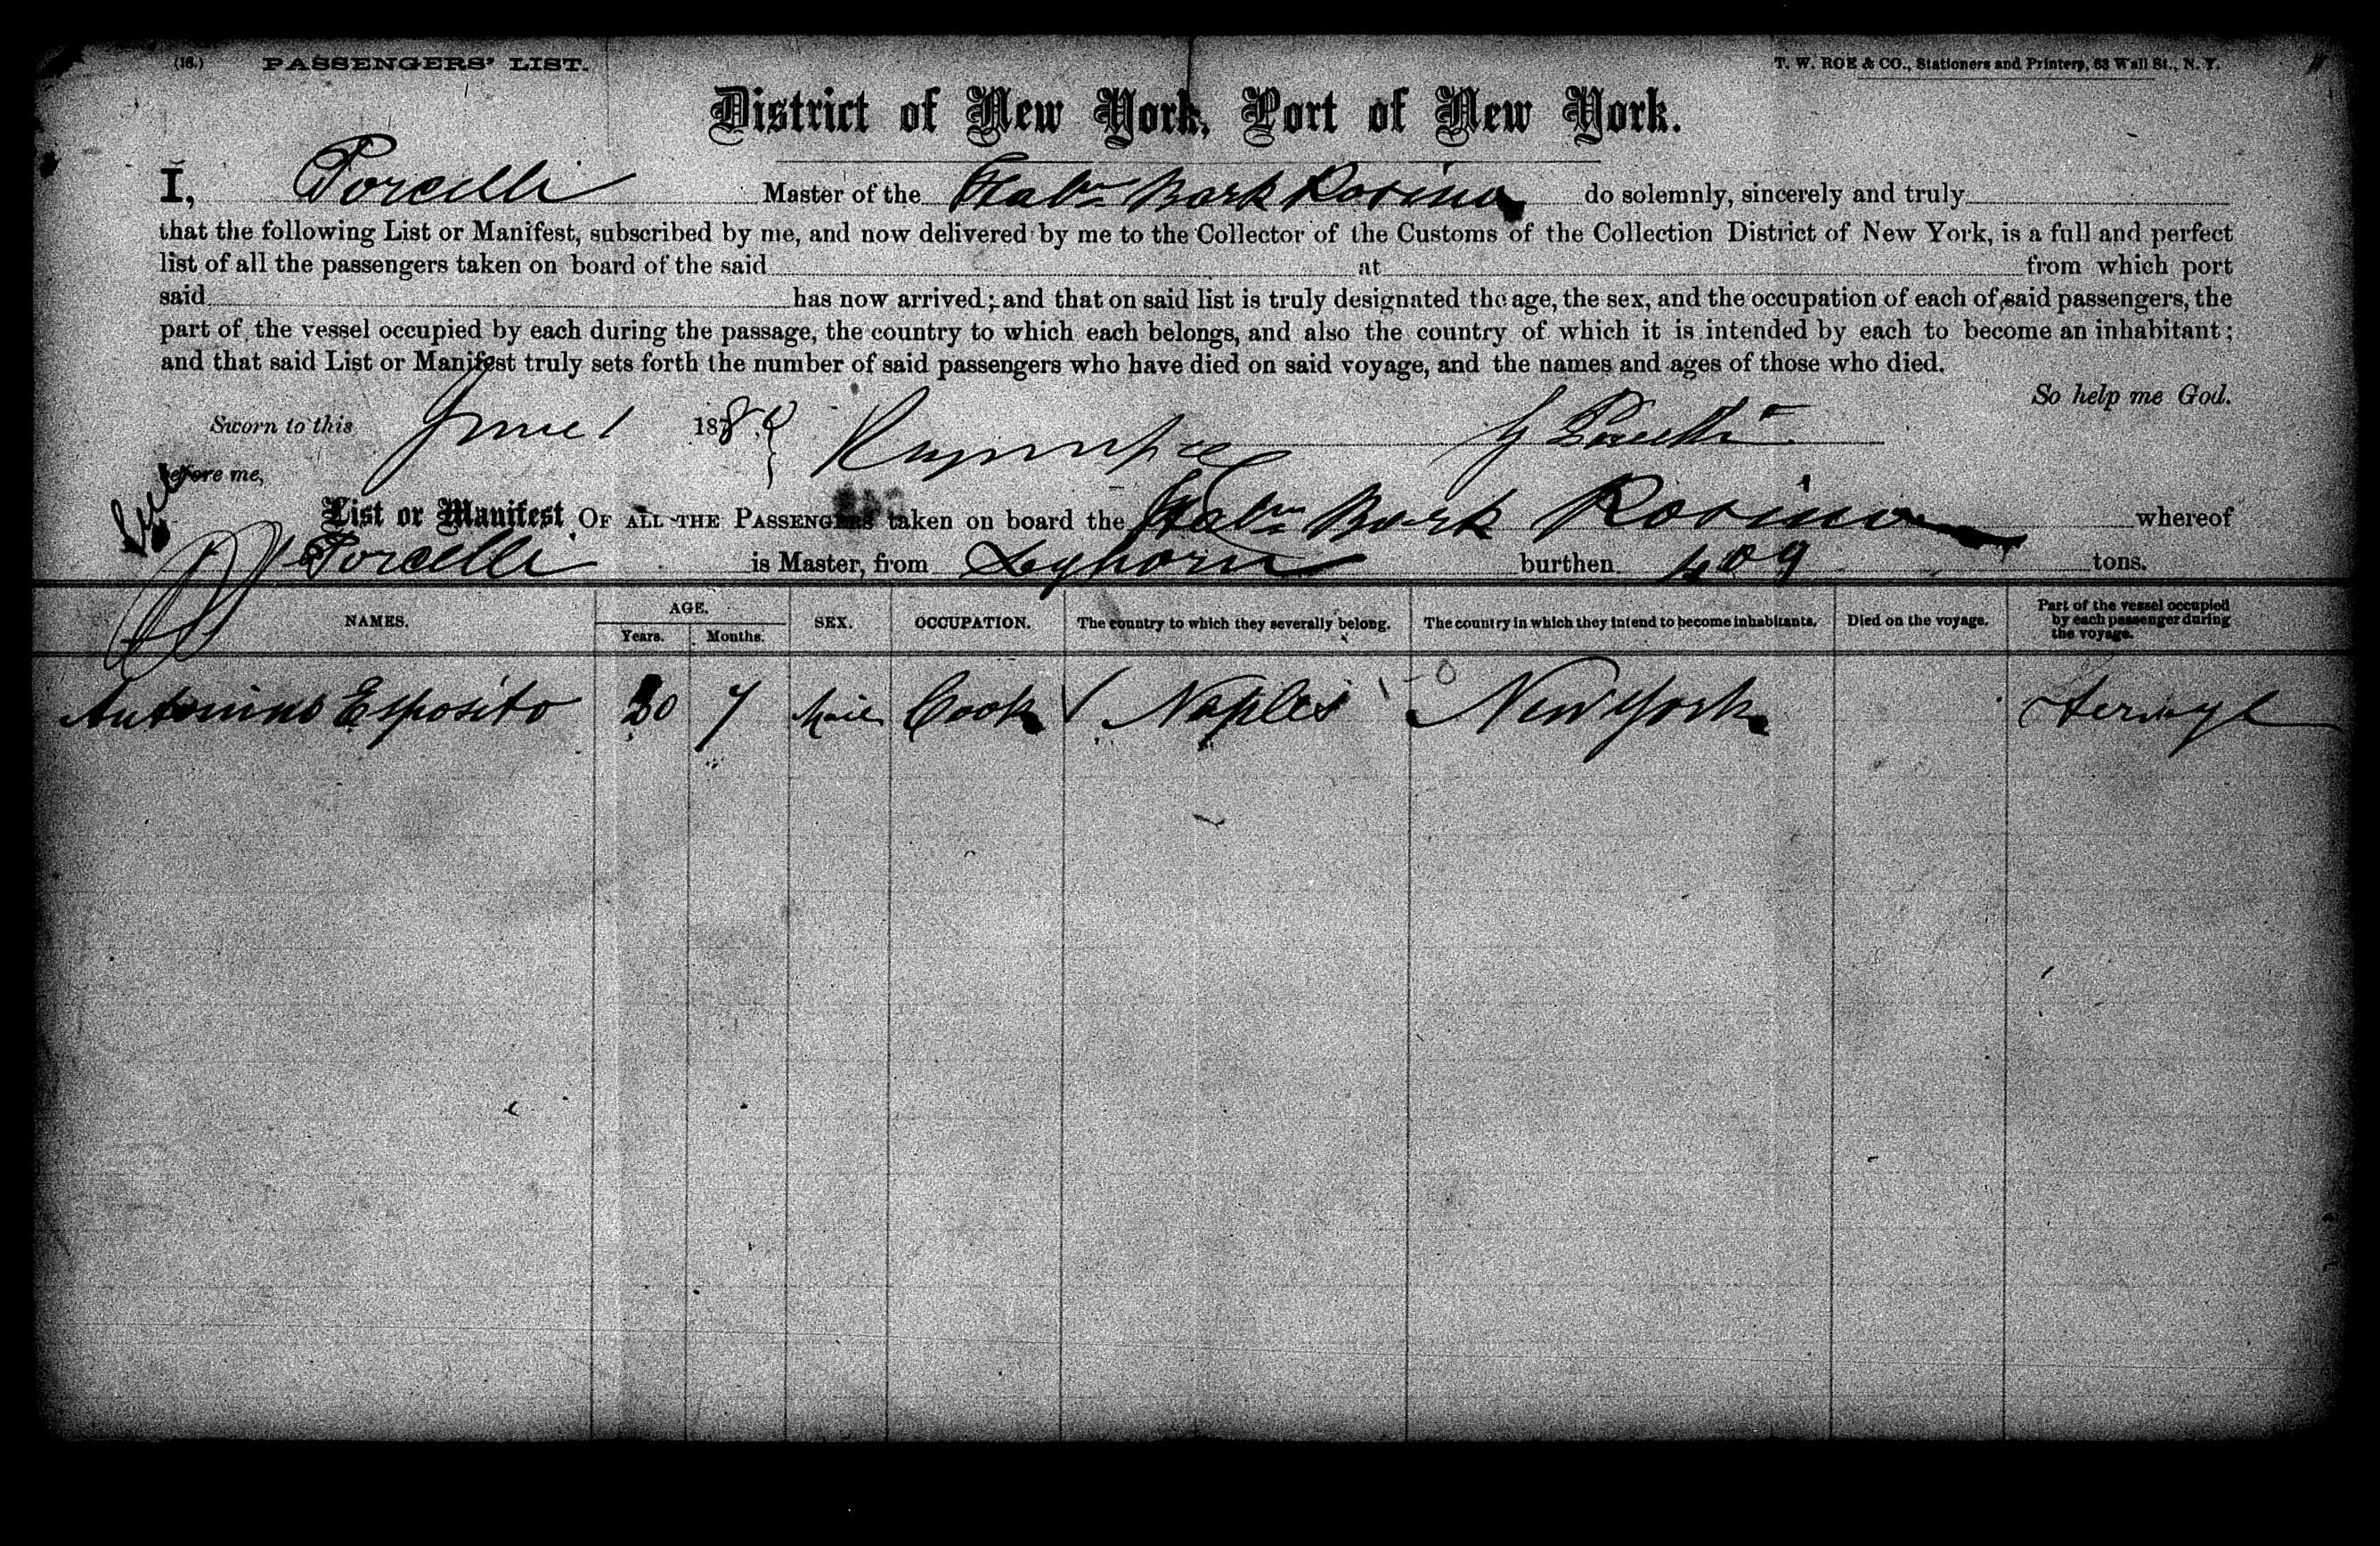 (16.) PASSENGERS' LIST. T. W. ROE & CO., Stationers and Printers, 63 Wall St., N. Y.
District of New York, Port of New York.
I, Porcelli Master of the Italn Bark Rosina do solemnly, sincerely and truly
that the following List or Manifest, subscribed by me, and now delivered by me to the Collector of the Customs of the Collection District of New York, is a full and perfect
list of all the passengers taken on board of the said at from which port
said has now arrived; and that on said list is truly designated the age, the sex, and the occupation of each of said passengers, the
part of the vessel occupied by each during the passage, the country to which each belongs, and also the country of which it is intended by each to become an inhabitant;
and that said List or Manifest truly sets forth the number of said passengers who have died on said voyage, and the names and ages of those who died.
So help me God.
Sworn to this June 1 188
before me,
List or Manifest OF ALL THE PASSENGERS taken on board the Italn Bark Rosina whereof
Porcelli is Master, from Leghorn burthen 409 tons.
NAMES. AGE. SEX. OCCUPATION. The country to which they severally belong. The country in which they intend to become inhabitants. Died on the voyage. Part of the vessel occupied by each passenger during the voyage.
Years. Months.
Antonino Esposito 30 7 Male Cook Naples New York